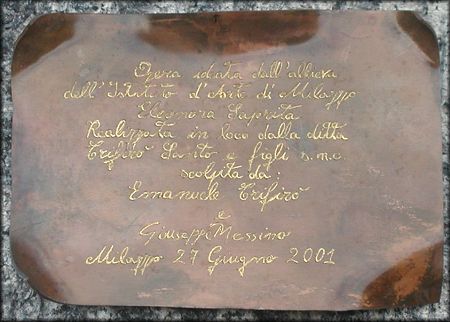 Opera ideata dall'allieva
dell'Istituto d'Arte di Milazzo
Eleonora Saprita
Realizzata in loco dalla ditta
Trifirò Santo e figli s.n.c.
scolpita da:
Emanuele Trifirò
e
Giuseppe Messina
Milazzo 27 Giugno 2001